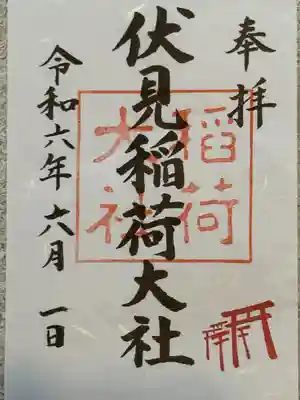 奉拝
伏見稲荷大社
稲荷
大社
令和六年六月一日